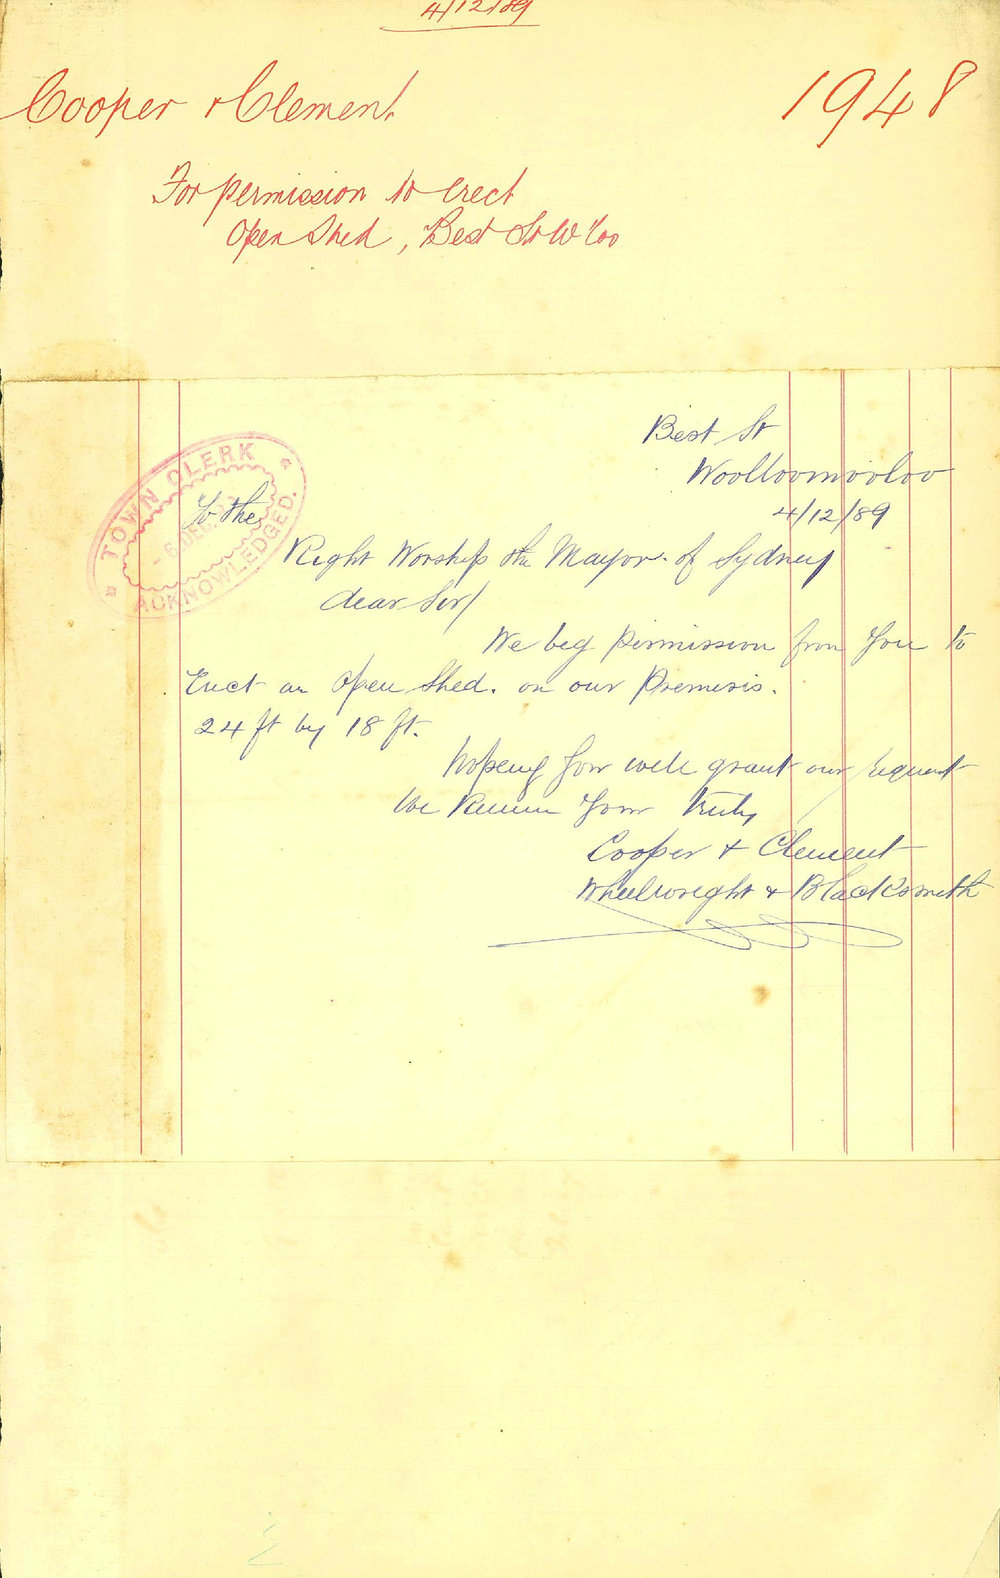 4/12/89
Cooper & Clement
1948
For permission to erect
Open Shed, Best St W'loo
TOWN CLERK
6 DEC.
ACKNOWLEDGED.
Best St
Woolloomooloo
4/12/89
To the
Right Worship the Mayor of Sydney
dear Sir/
We beg permission from You to
Erect an Open Shed. on our Premesis.
24 ft by 18 ft.
Hopeing You will grant our request
We Remain Yours truly
Cooper & Clement
Wheelwright & Blacksmith